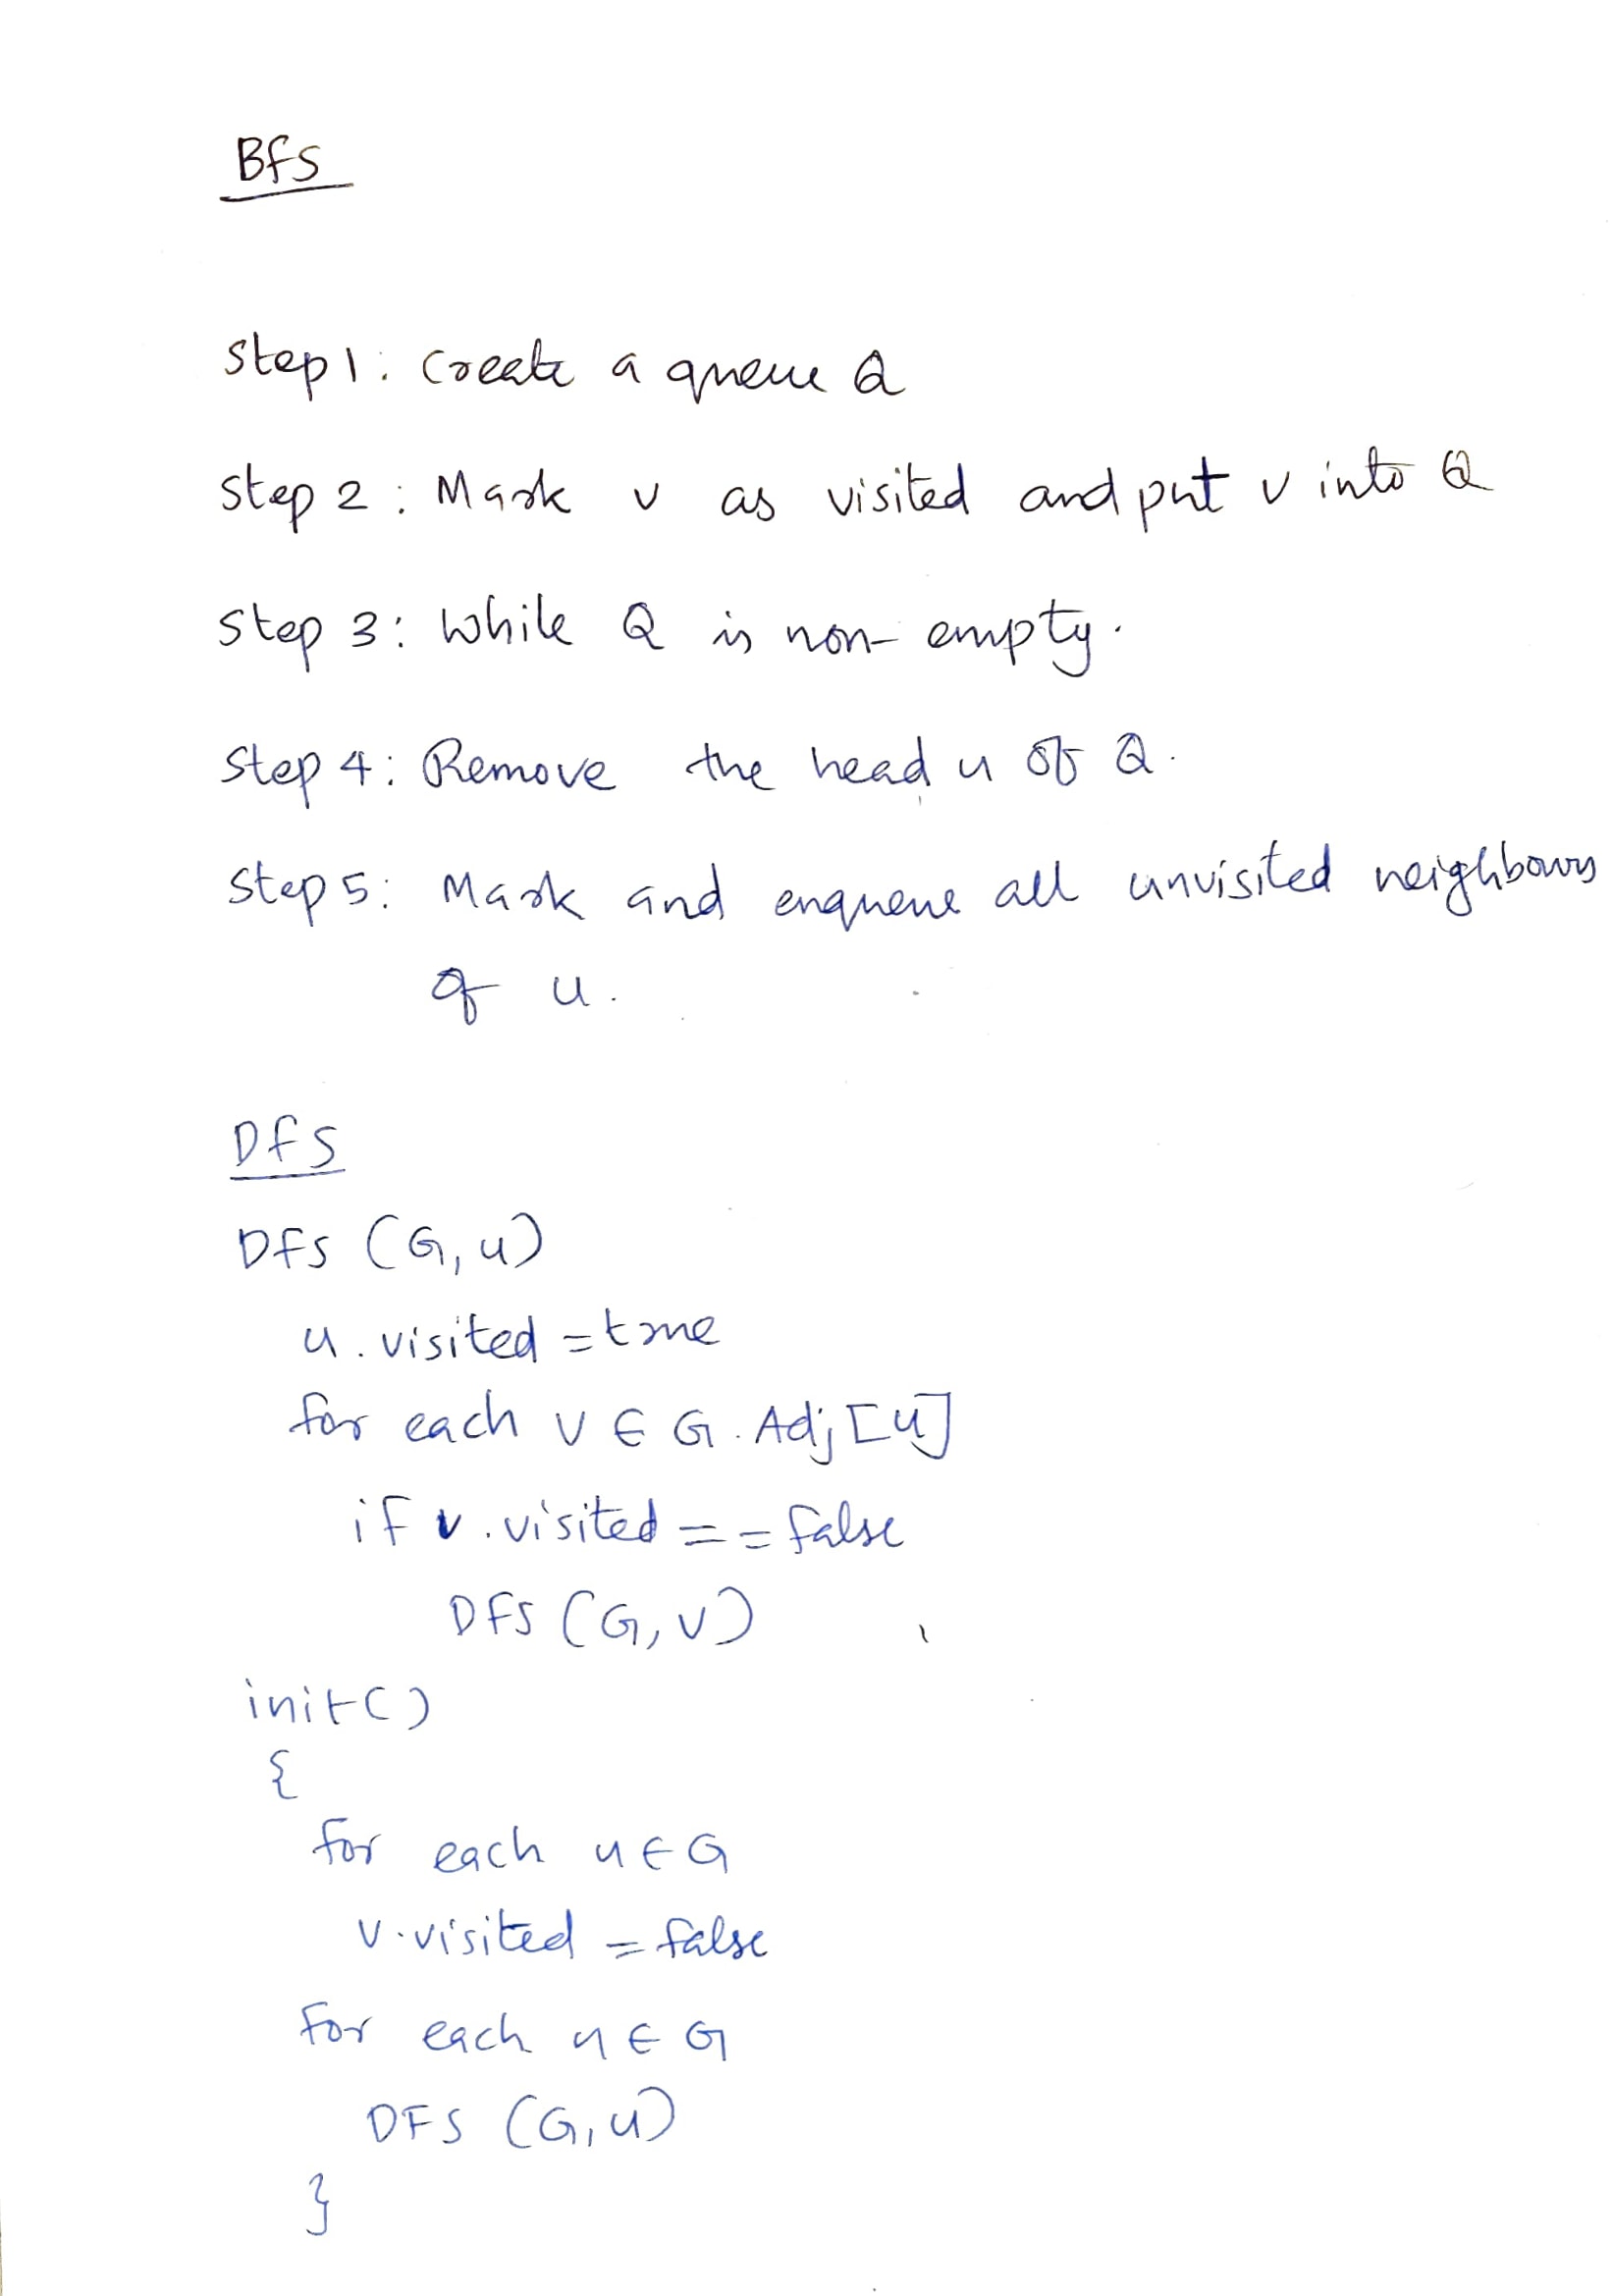 BFS
Step 1: Create a queue Q
Step 2: Mark v as visited and put v into Q
Step 3: While Q is non-empty.
Step 4: Remove the head u of Q.
Step 5: Mark and enqueue all unvisited neighbours
of u.
DFS
DFS (G, u)
u.visited = true
for each v ∈ G.Adj[u]
if v.visited == false
DFS (G, v)
init()
{
for each u ∈ G
v.visited = false
for each u ∈ G
DFS (G, u)
}